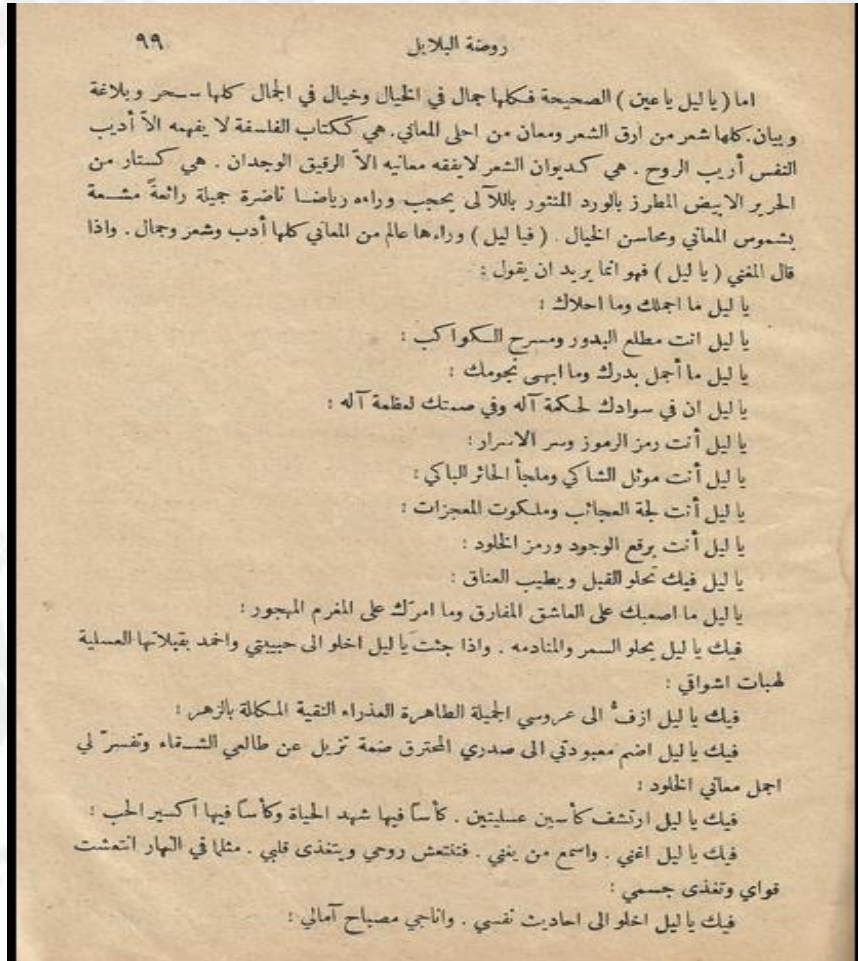 روضة البلابل ٩٩
اما ( يا ليل يا عين ) الصحيحة فكلها جمال في الخيال وخيال في الجمال كلها سحر وبلاغة
وبيان. كلها شعر من ارق الشعر ومعان من احلى المعاني. هي ككتاب الفلسفة لا يفهمه الاّ أديب
النفس أريب الروح . هي كديوان الشعر لايفقه معانيه الاّ الرقيق الوجدان . هي كستار من
الحرير الابيض المطرز بالورد المنثور باللآلى يحجب وراءه رياضا ناضرة جميلة رائعةً مشعة
بشموس المعاني ومحاسن الخيال . ( فيا ليل ) وراءها عالم من المعاني كلها أدب وشعر وجمال . واذا
قال المغني ( يا ليل ) فهو انما يريد ان يقول :
يا ليل ما اجملك وما احلاك :
يا ليل انت مطلع البدور ومسرح الكواكب :
يا ليل ما أجمل بدرك وما ابهى نجومك :
يا ليل ان في سوادك لحكمة آله وفي صمتك لعظمة آله :
يا ليل أنت رمز الرموز وسر الاسرار :
يا ليل أنت موئل الشاكي وملجأ الحائر الباكي :
يا ليل أنت لجة العجائب وملكوت المعجزات :
يا ليل أنت برقع الوجود ورمز الخلود :
يا ليل فيك تحلو القبل ويطيب العناق :
يا ليل ما اصعبك على العاشق المفارق وما امرّك على المغرم المهجور :
فيك يا ليل يحلو السمر والمنادمه . واذا جئتَ يا ليل اخلو الى حبيبتي واخمد بقبلاتها العسلية
لهبات اشواقي :
فيك يا ليل ازفُّ الى عروسي الجميلة الطاهرة العذراء النقية المكللة بالزهر :
فيك يا ليل اضم معبودتي الى صدري المحترق ضمة تزيل عن طالعي الشقاء وتفسرّ لي
اجمل معاني الخلود :
فيك يا ليل ارتشف كأسين عسليتين . كأساً فيها شهد الحياة وكأساً فيها اكسير الحب :
فيك يا ليل اغني . واسمع من يغني . فتنتعش روحي ويتغذى قلبي . مثلما في النهار انتعشت
قواي وتغذى جسمي :
فيك يا ليل اخلو الى احاديث نفسي . واناجي مصباح آمالي :